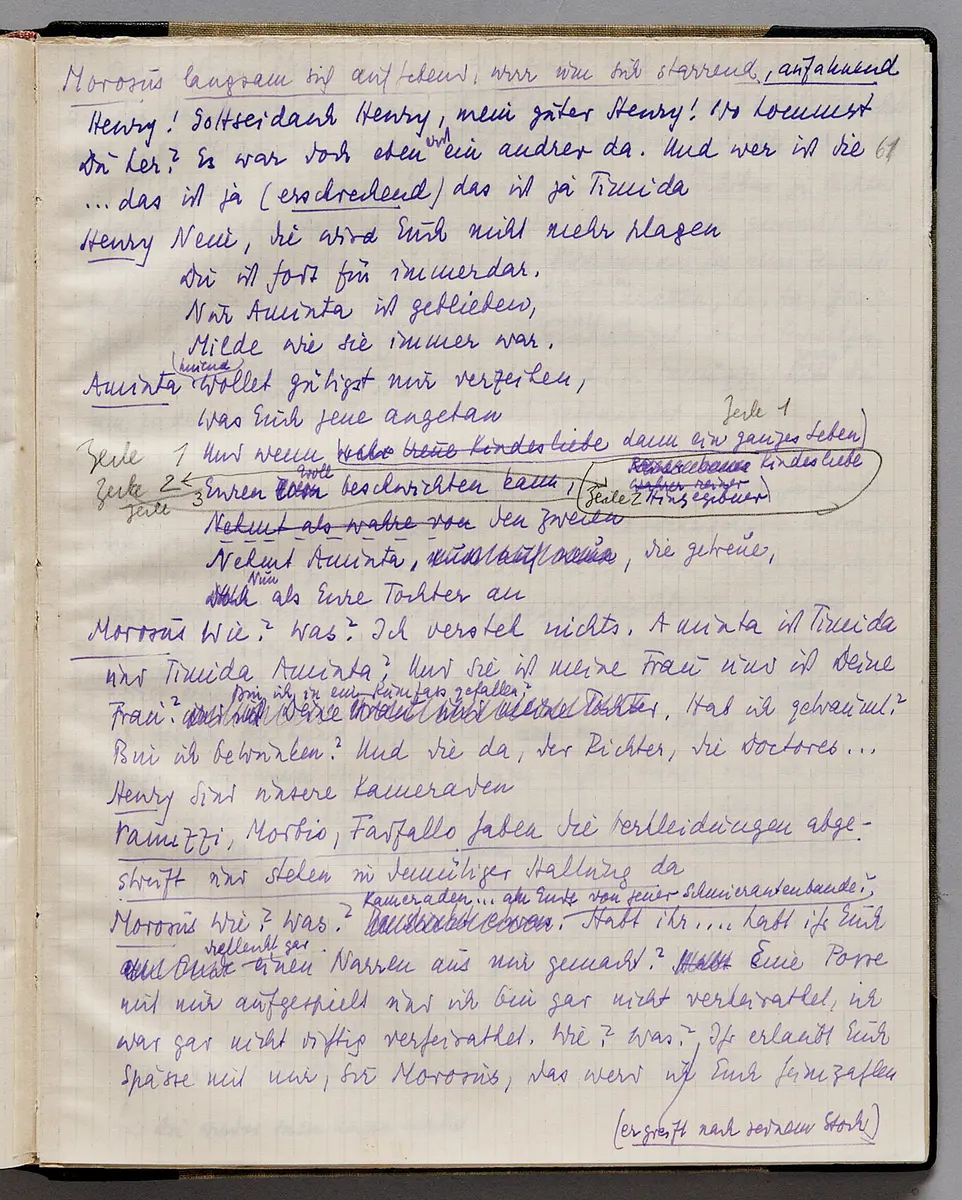 Morosus langsam sich aufhebend, wirr um sich starrend, aufatmend
Henry! Gottseidank Henry, mein guter Henry! Wo kommst
Du her? Es war doch eben erst ein andrer da. Und wer ist die 61
... das ist ja (erschreckend) das ist ja Timida
Henry Nein, die wird Euch nicht mehr plagen
Die ist fort für immerdar.
Nur Aminta ist geblieben,
Milde wie sie immer war.
(knieend)
Aminta Wollet gütigst mir verzeihen,
Was Euch jene angetan
Zeile 1
Zeile 1 Und wenn wahre treue Kindesliebe dann ein ganzes Leben
Kindesliebe
Zeile 2 wahrer reiner
Zeile 3 Euren Groll beschwichten kann, Zeile 2 Hingegebner
Nehmt als wahre von den Zweien
Nehmt Aminta, die getreue,
Nun
als Eure Tochter an
Morosus Wie? Was? Ich versteh nichts. Aminta ist Timida
und Timida Aminta? Und sie ist meine Frau und ist Deine
Bin ich in ein Rumfass gefallen?
Frau? Deine und meine Tochter. Hab ich geträumt?
Bin ich betrunken? Und die da, der Richter, die Doctores...
Henry Sind unsere Kameraden
Vanuzzi, Morbio, Farfallo haben die Verkleidungen abge-
streift und stehen in demütiger Haltung da
Kameraden... am Ende von jener Schmierantenbande?
Morosus Wie? Was? Habt ihr.... habt ihr Euch
vielleicht gar
einen Narren aus mir gemacht? Habt Eine Posse
mit mir aufgespielt und ich bin gar nicht verheirathet, ich
war gar nicht richtig verheirathet. Wie? Was? Ihr erlaubt Euch
Spässe mit mir, Sir Morosus, das werd ich Euch heimzahlen
(ergreift nach seinem Stock)